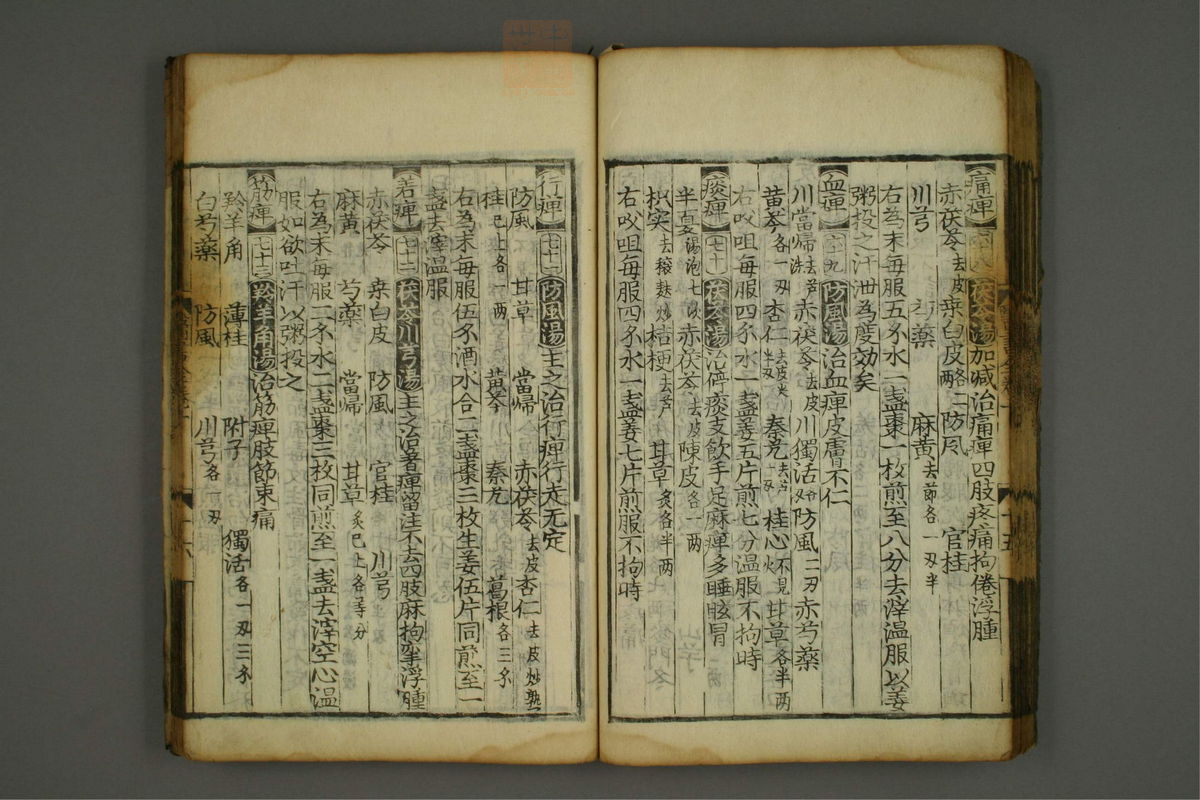 痛痺 六十八 茯苓湯加减治痛痺四肢疼痛拘倦浮腫
赤茯苓去皮 桒白皮各二两 防风 官桂
川芎 芍藥 麻黄去節各一刄半
右為末每服五多水一盞棗一枚煎至八分去滓温服以姜
粥投之汗泄為度効矣
血痺 六十九 防風湯治血痺皮膚不仁
川當帰去芦洗 赤茯苓去皮 川獨活各一刄 防風二刄 赤芍藥
黄芩各一刄 杏仁去皮尖半刄 秦艽去芦一刄 桂心不見火 甘草各半两
右㕮咀每服四多水一盞姜五片煎七分温服不拘時
痰痺 七十 茯苓湯治停痰支飲手足麻痺多睡眩冒
半夏湯泡七次 赤茯苓去皮 陳皮各一两
枳实去穣麸炒 桔梗去芦 甘草炙各半两
右㕮咀每服四多水一盞姜七片煎服不拘時
行痺 七十一 防風湯主之治行痺行走无定
防風 甘草 當帰 赤茯苓去皮 杏仁去皮炒熟
桂已上各一两 黄芩 秦艽 葛根各三多
右為末每服伍多酒水合二盞棗三枚生姜伍片同煎至一
盞去滓温服
着痺 七十二 茯苓川芎湯主之治着痺留注不去四肢麻拘挛浮腫
赤茯苓 桒白皮 防風 官桂 川芎
麻黄 芍藥 當帰 甘草炙已上各等分
右為末每服二多水二盞棗三枚同煎至一盞去滓空心温
服如欲吐汗以粥投之
筋痺 七十三 羚羊角湯治筋痺肢節束痛
羚羊角 薄桂 附子 獨活各一刄三多
白芍藥 防風 川芎各一刄